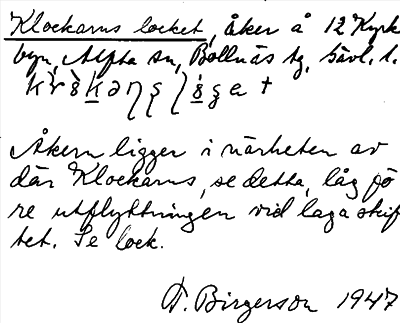 Klockarns locket, åker å 12 Kyrk
byn, Alfta sn, Bollnäs tg, Gävl. l.
Åkern ligger i närheten av
där Klockarns, se detta, låg fö
re utflyttningen vid laga skif
tet. Se lock.
F. Birgerson 1947